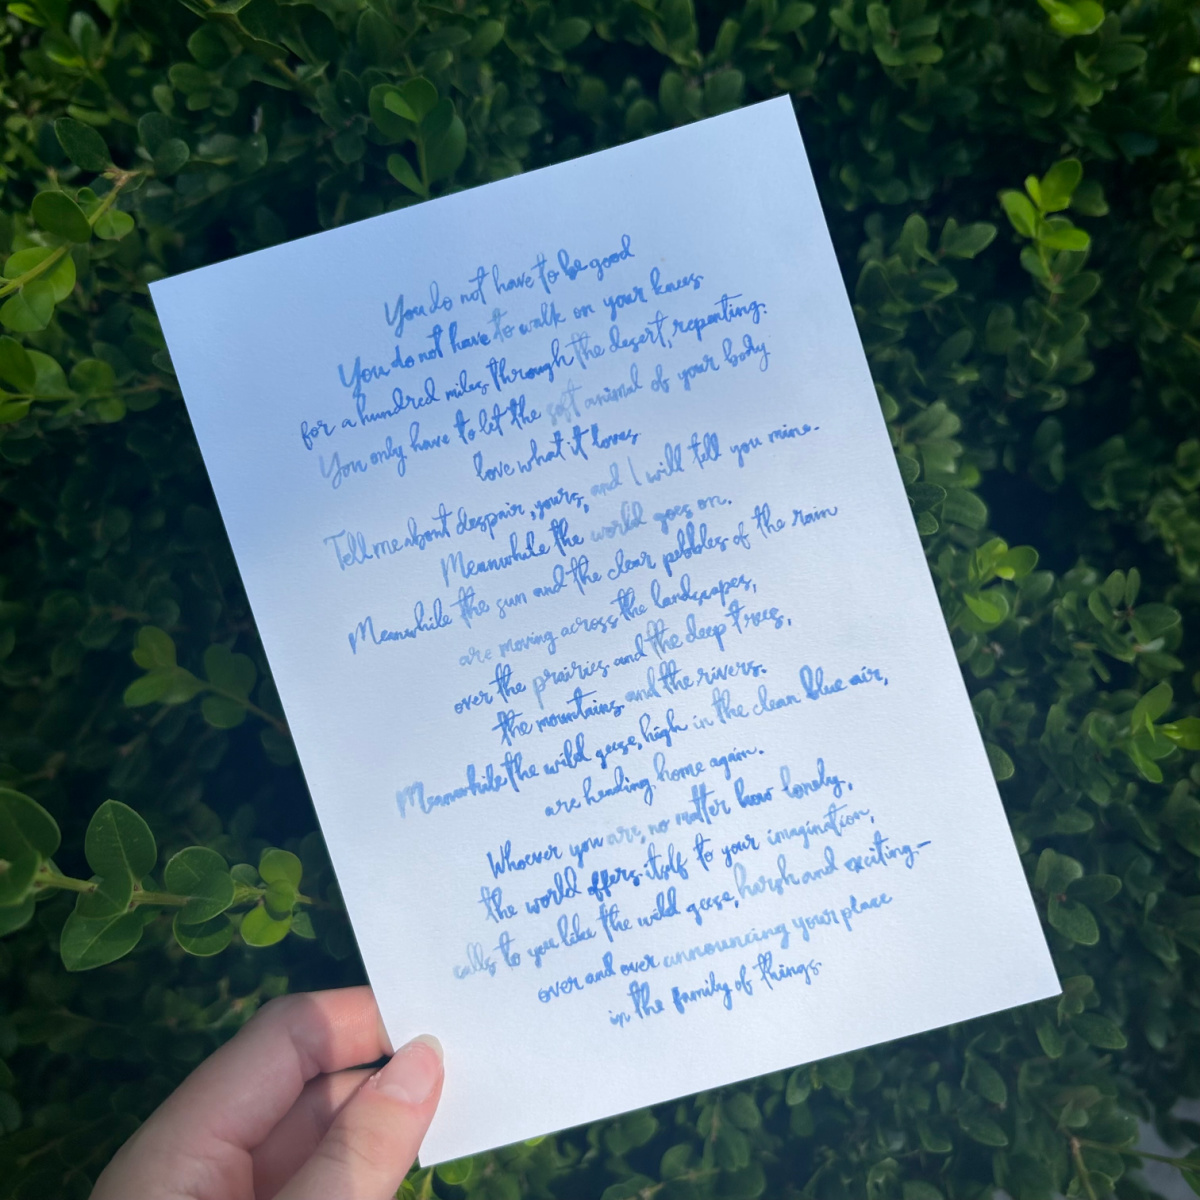 You do not have to be good
You do not have to walk on your knees
for a hundred miles through the desert, repenting.
You only have to let the soft animal of your body
love what it loves
Tell me about despair, yours, and I will tell you mine.
Meanwhile the world goes on.
Meanwhile the sun and the clear pebbles of the rain
are moving across the landscapes,
over the prairies and the deep trees,
the mountains and the rivers.
Meanwhile the wild geese, high in the clean blue air,
are heading home again.
Whoever you are, no matter how lonely,
the world offers itself to your imagination,
calls to you like the wild geese, harsh and exciting—
over and over announcing your place
in the family of things.